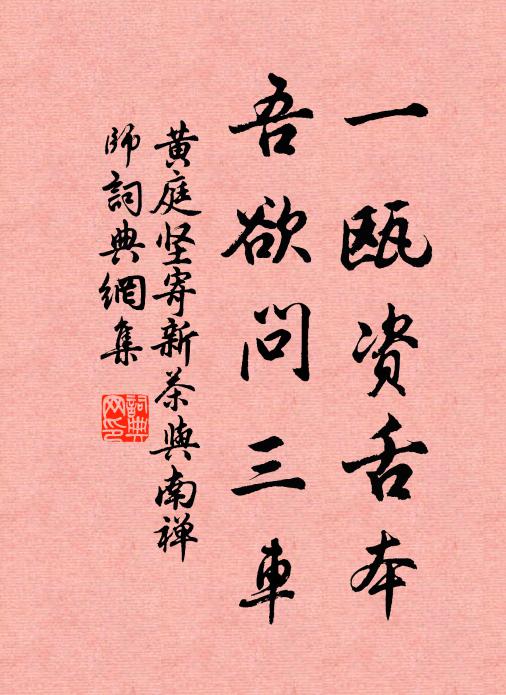 一瓯资舌本
吾欲问三車
黄庭坚寄新茶與南禅
師詞典網集
詞典網印